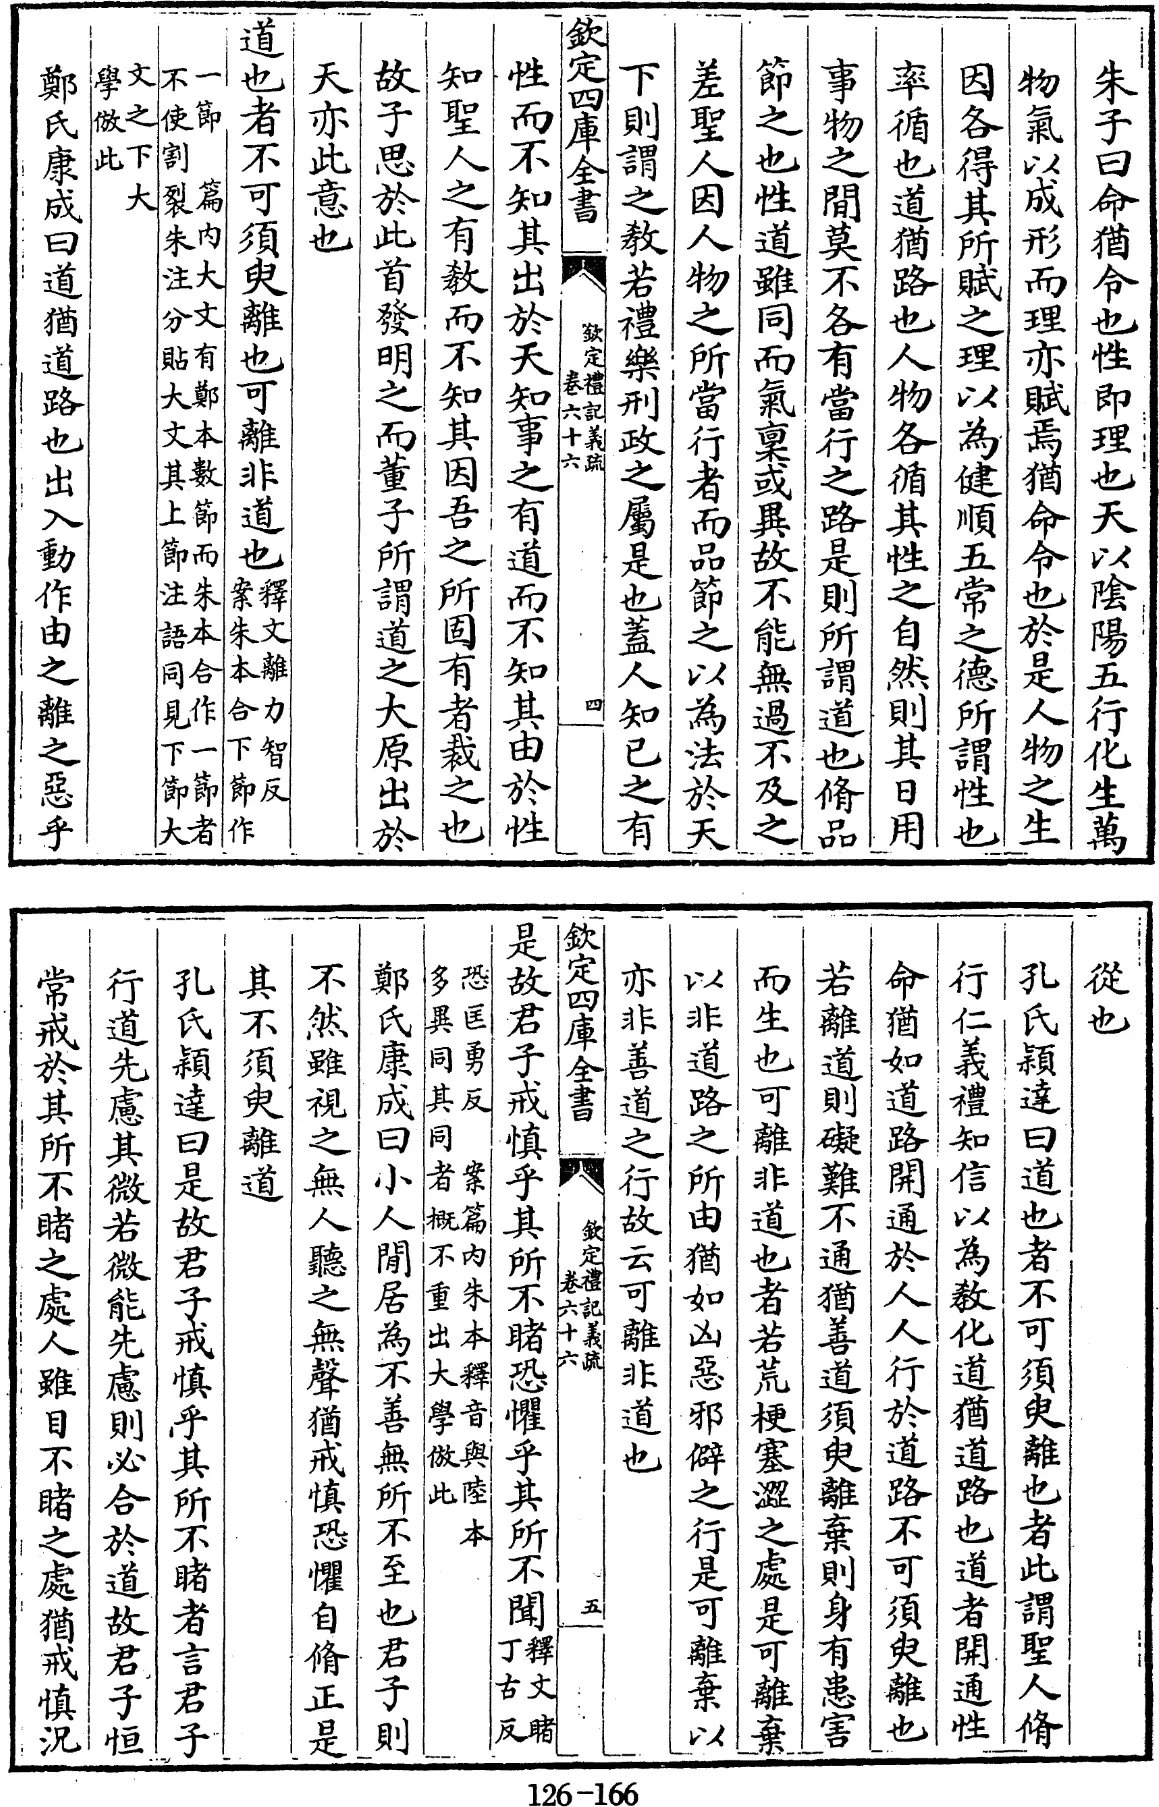 朱子曰命猶令也性即理也天以陰陽五行化生萬
物氣以成形而理亦賦焉猶命令也於是人物之生
因各得其所賦之理以為健順五常之德所謂性也
率循也道猶路也人物各循其性之自然則其日用
事物之間莫不各有當行之路是則所謂道也脩品
節之也性道雖同而氣稟或異故不能無過不及之
差聖人因人物之所當行者而品節之以為法於天
下則謂之教若禮樂刑政之屬是也蓋人知已之有
欽定四庫全書
欽定禮記義疏
卷六十六
四
性而不知其出於天知事之有道而不知其由於性
知聖人之有教而不知其因吾之所固有者裁之也
故子思於此首發明之而董子所謂道之大原出於
天亦此意也
道也者不可須臾離也可離非道也釋文離力智反
案朱本合下節作
一節 篇内大文有鄭本數節而朱本合作一節者
不使割裂朱注分貼大文其上節注語同見下節大
文之下大
學倣此
鄭氏康成曰道猶道路也出入動作由之離之惡乎
從也
孔氏穎達曰道也者不可須臾離也者此謂聖人脩
行仁義禮知信以為教化道猶道路也道者開通性
命猶如道路開通於人人行於道路不可須臾離也
若離道則礙難不通猶善道須臾離棄則身有患害
而生也可離非道也者若荒梗塞澀之處是可離棄
以非道路之所由猶如凶惡邪僻之行是可離棄以
亦非善道之行故云可離非道也
欽定四庫全書
欽定禮記義疏
卷六十六
五
是故君子戒慎乎其所不睹恐懼乎其所不聞釋文睹
丁古反
恐匡勇反 案篇内朱本釋音與陸本
多異同其同者概不重出大學倣此
鄭氏康成曰小人閒居為不善無所不至也君子則
不然雖視之無人聽之無聲猶戒慎恐懼自脩正是
其不須臾離道
孔氏穎達曰是故君子戒慎乎其所不睹者言君子
行道先慮其微若微能先慮則必合於道故君子恒
常戒於其所不睹之處人雖目不睹之處猶戒慎況
126-166